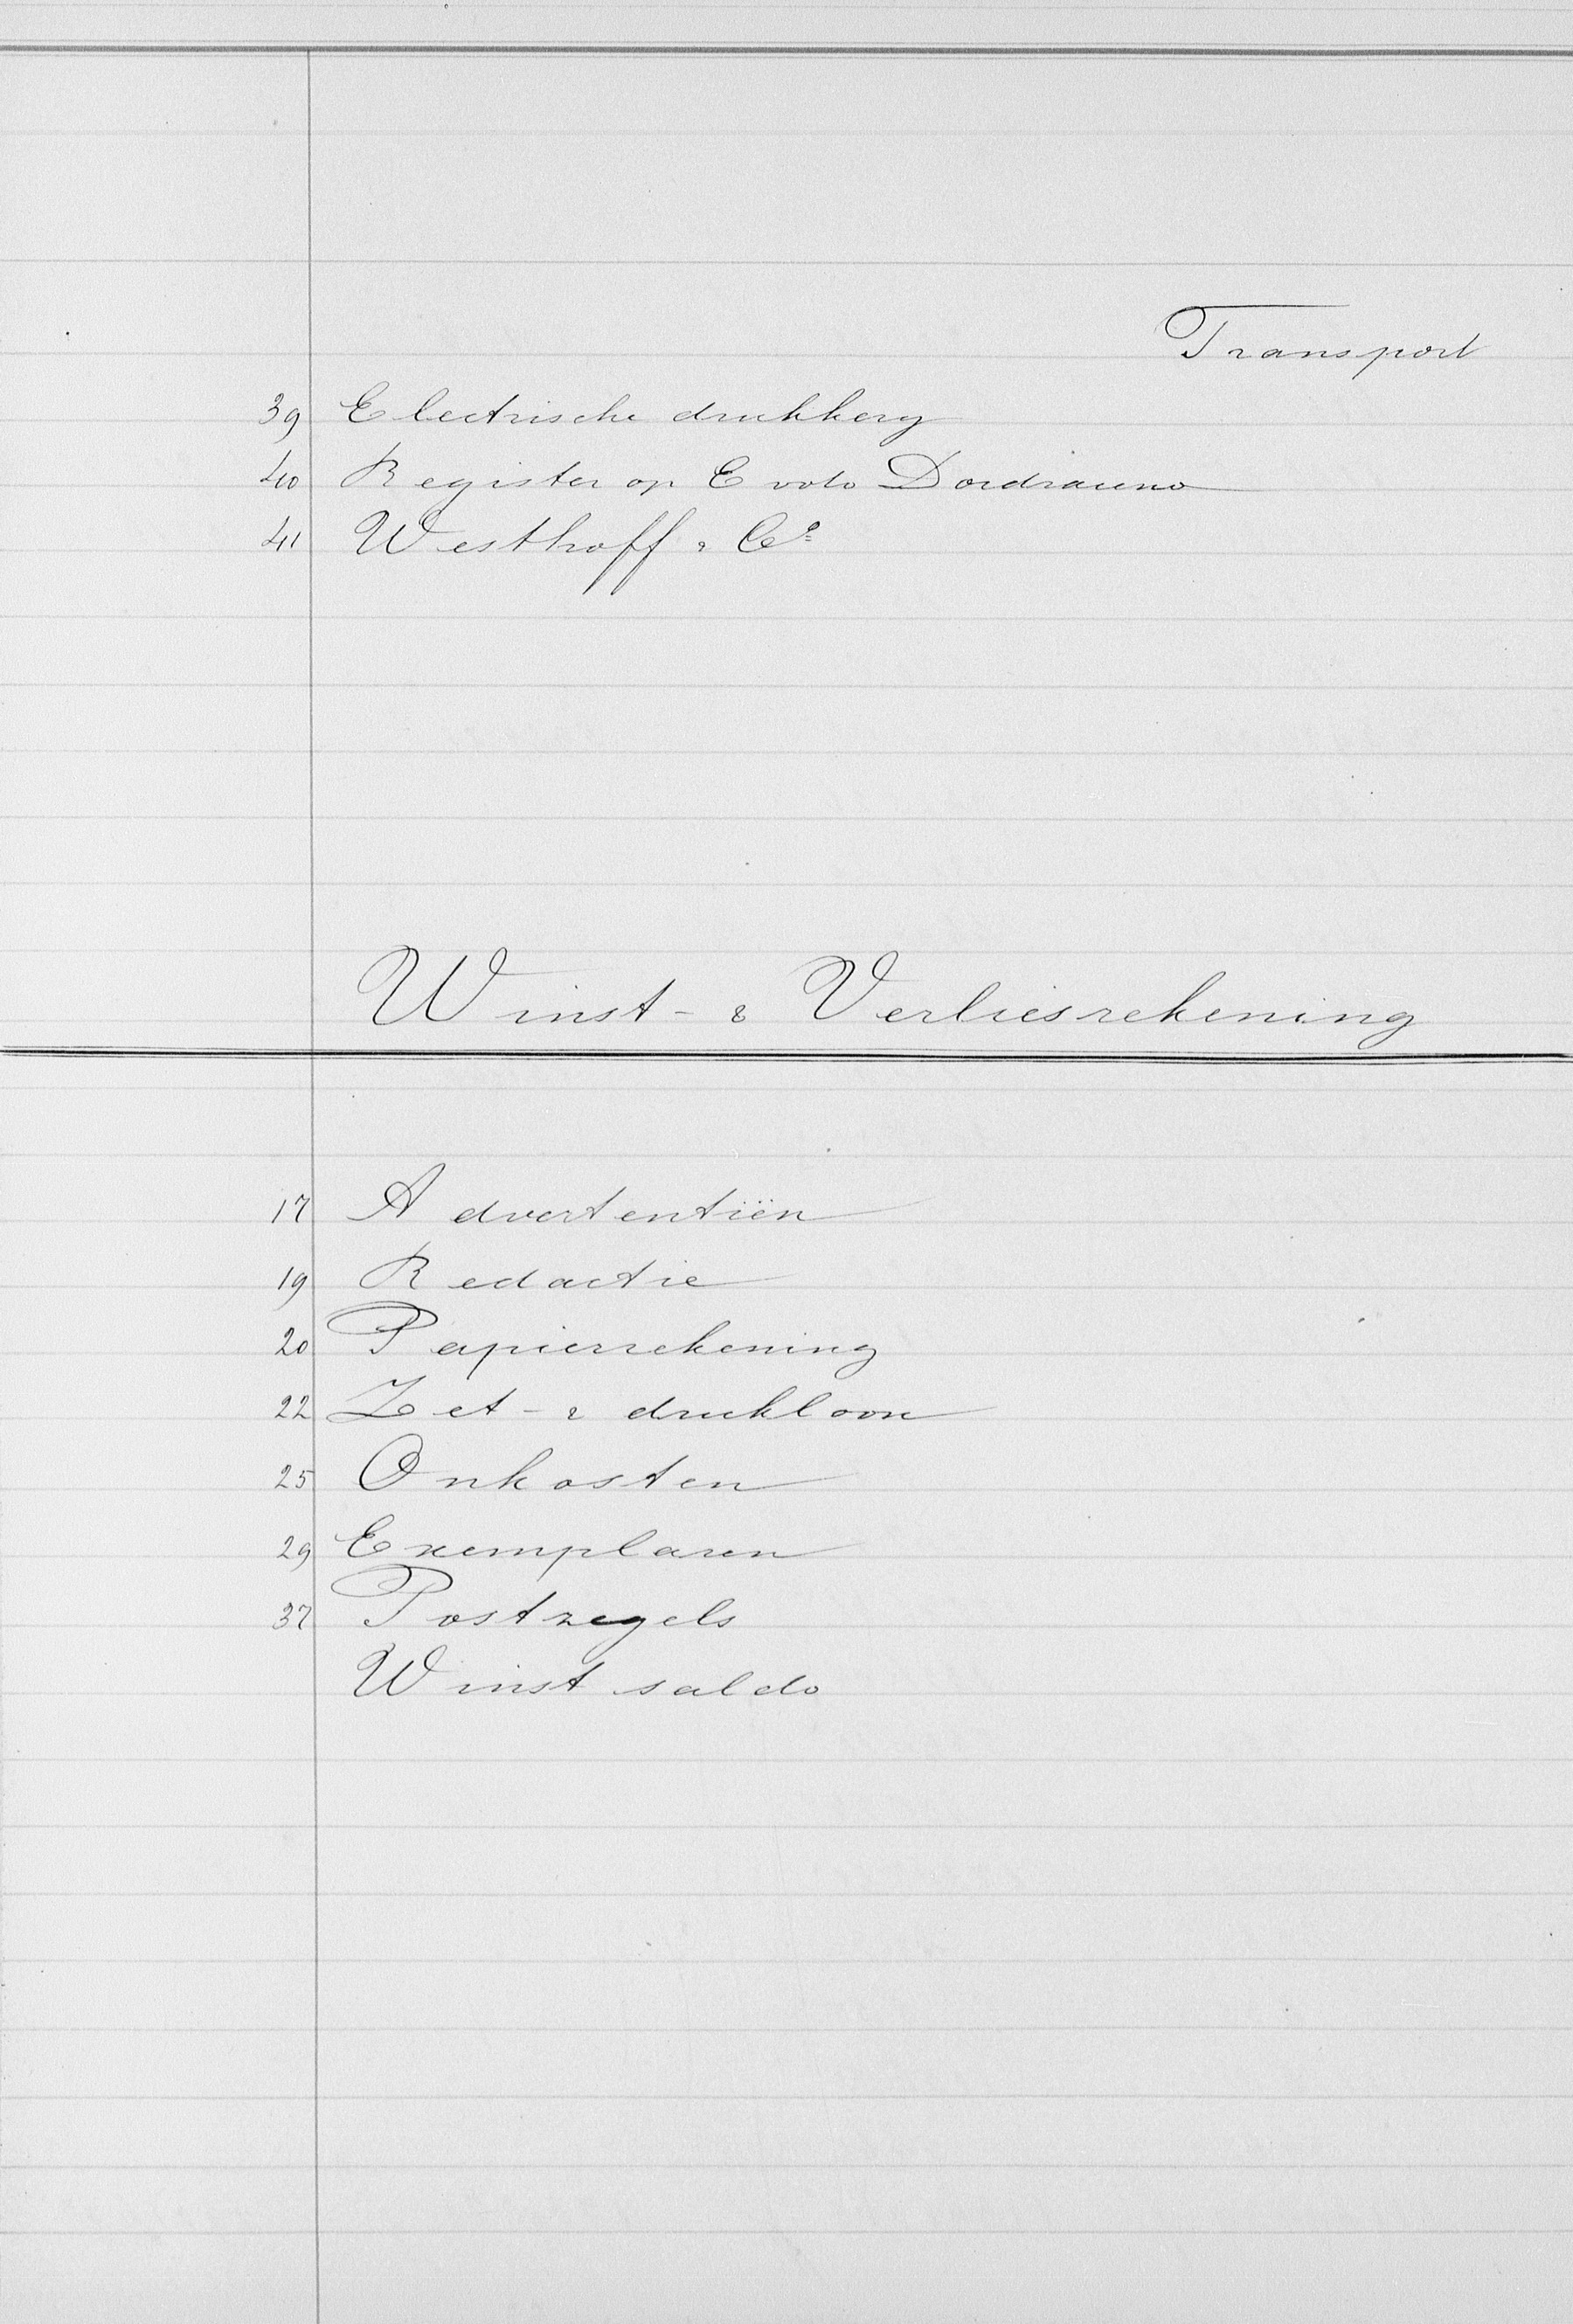 Transport
39 Electrische drukkery
40 Register op E voto Dordraceno
41 Westhoff & Co
Winst- & Verliesrekening
17 Advertentiën
19 Redactie
20 Papierrekening
22 Zet- & drukloon
25 Onkosten
29 Exemplaren
37 Postzegels
Winst saldo